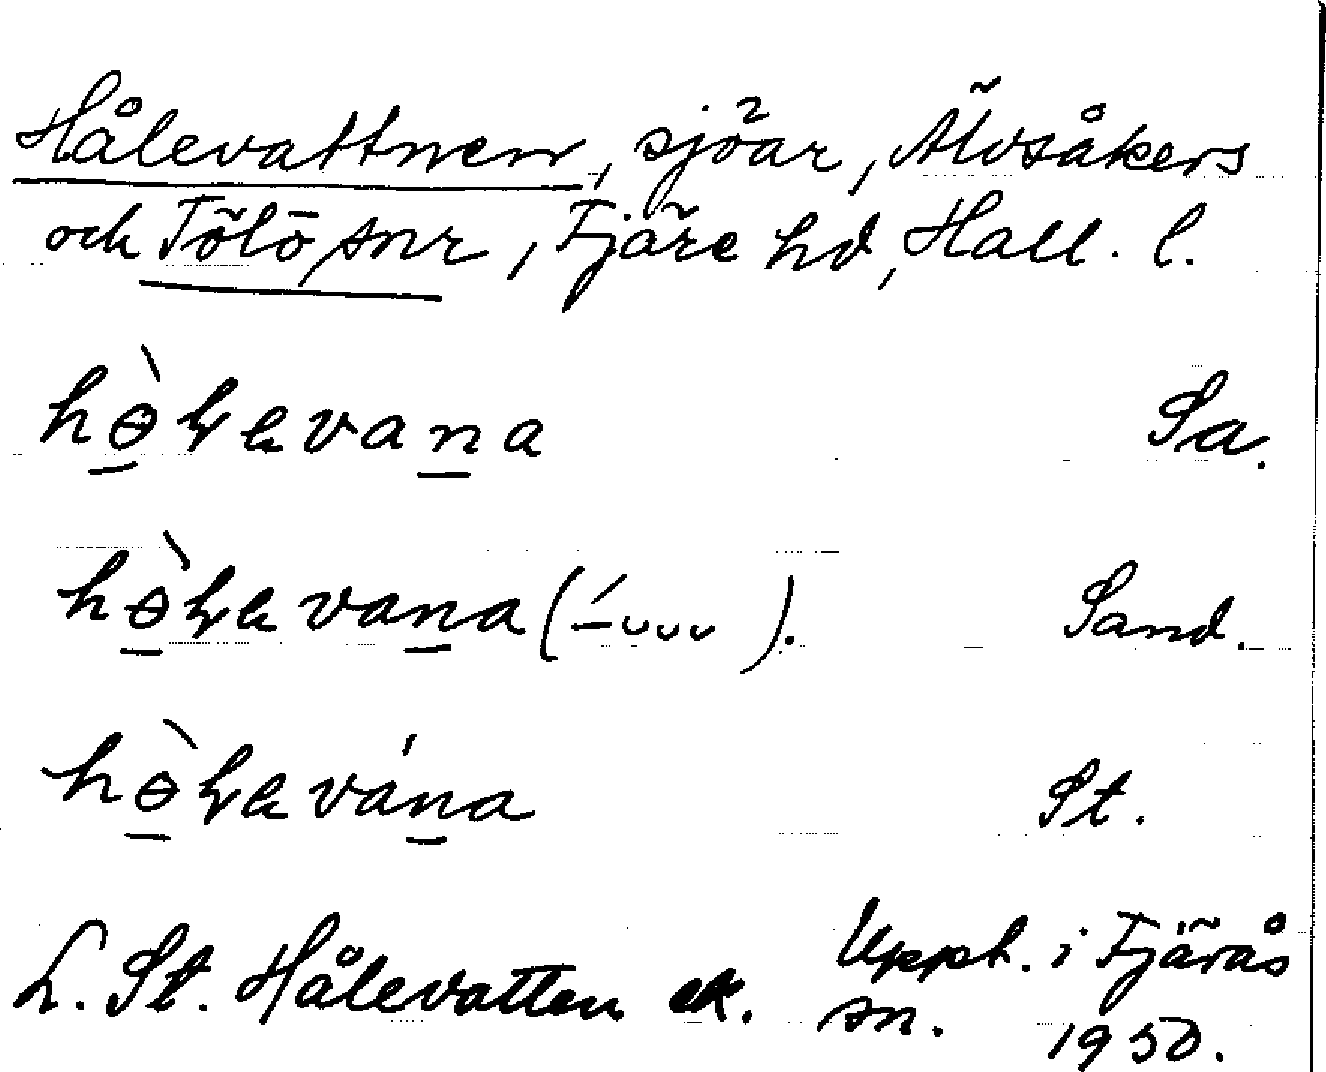 Hålevattnen, sjöar, Älvsåkers
och Tölö snr, Fjäre hd, Hall. l.
hɵ̀ḷevana Sa.
hɵ̀ḷevana (–́ ᴗᴗᴗ ). Sand.
hɵ̀ḷevána St.
L. St. Hålevatten ek. Uppt. i Fjärås
sn. 1950.